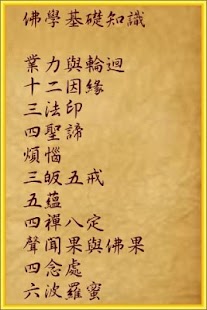 佛學基礎知識
業力與輪迴
十二因緣
三法印
四聖諦
煩惱
三皈五戒
五蘊
四禪八定
聲聞果與佛果
四念處
六波羅蜜